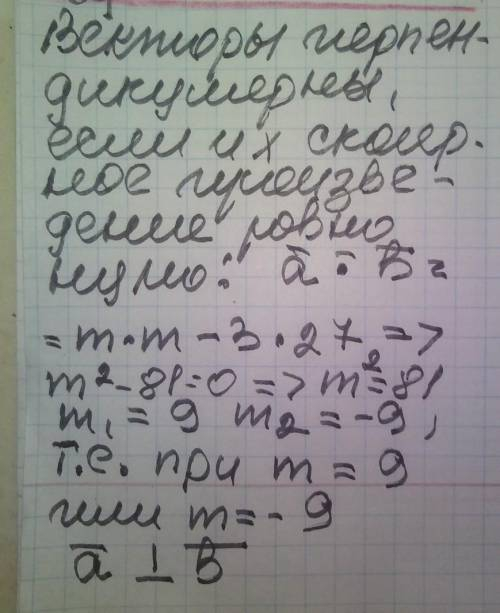 Векторы перпен-
дикулярны,
если их скаляр-
ное произве-
дение равно
нулю: a̅ · b̅ =
= m · m - 3 · 27 =>
m² - 81 = 0 => m² = 81
m₁ = 9 m₂ = -9,
т.е. при m = 9
или m = - 9
a̅ ⊥ b̅